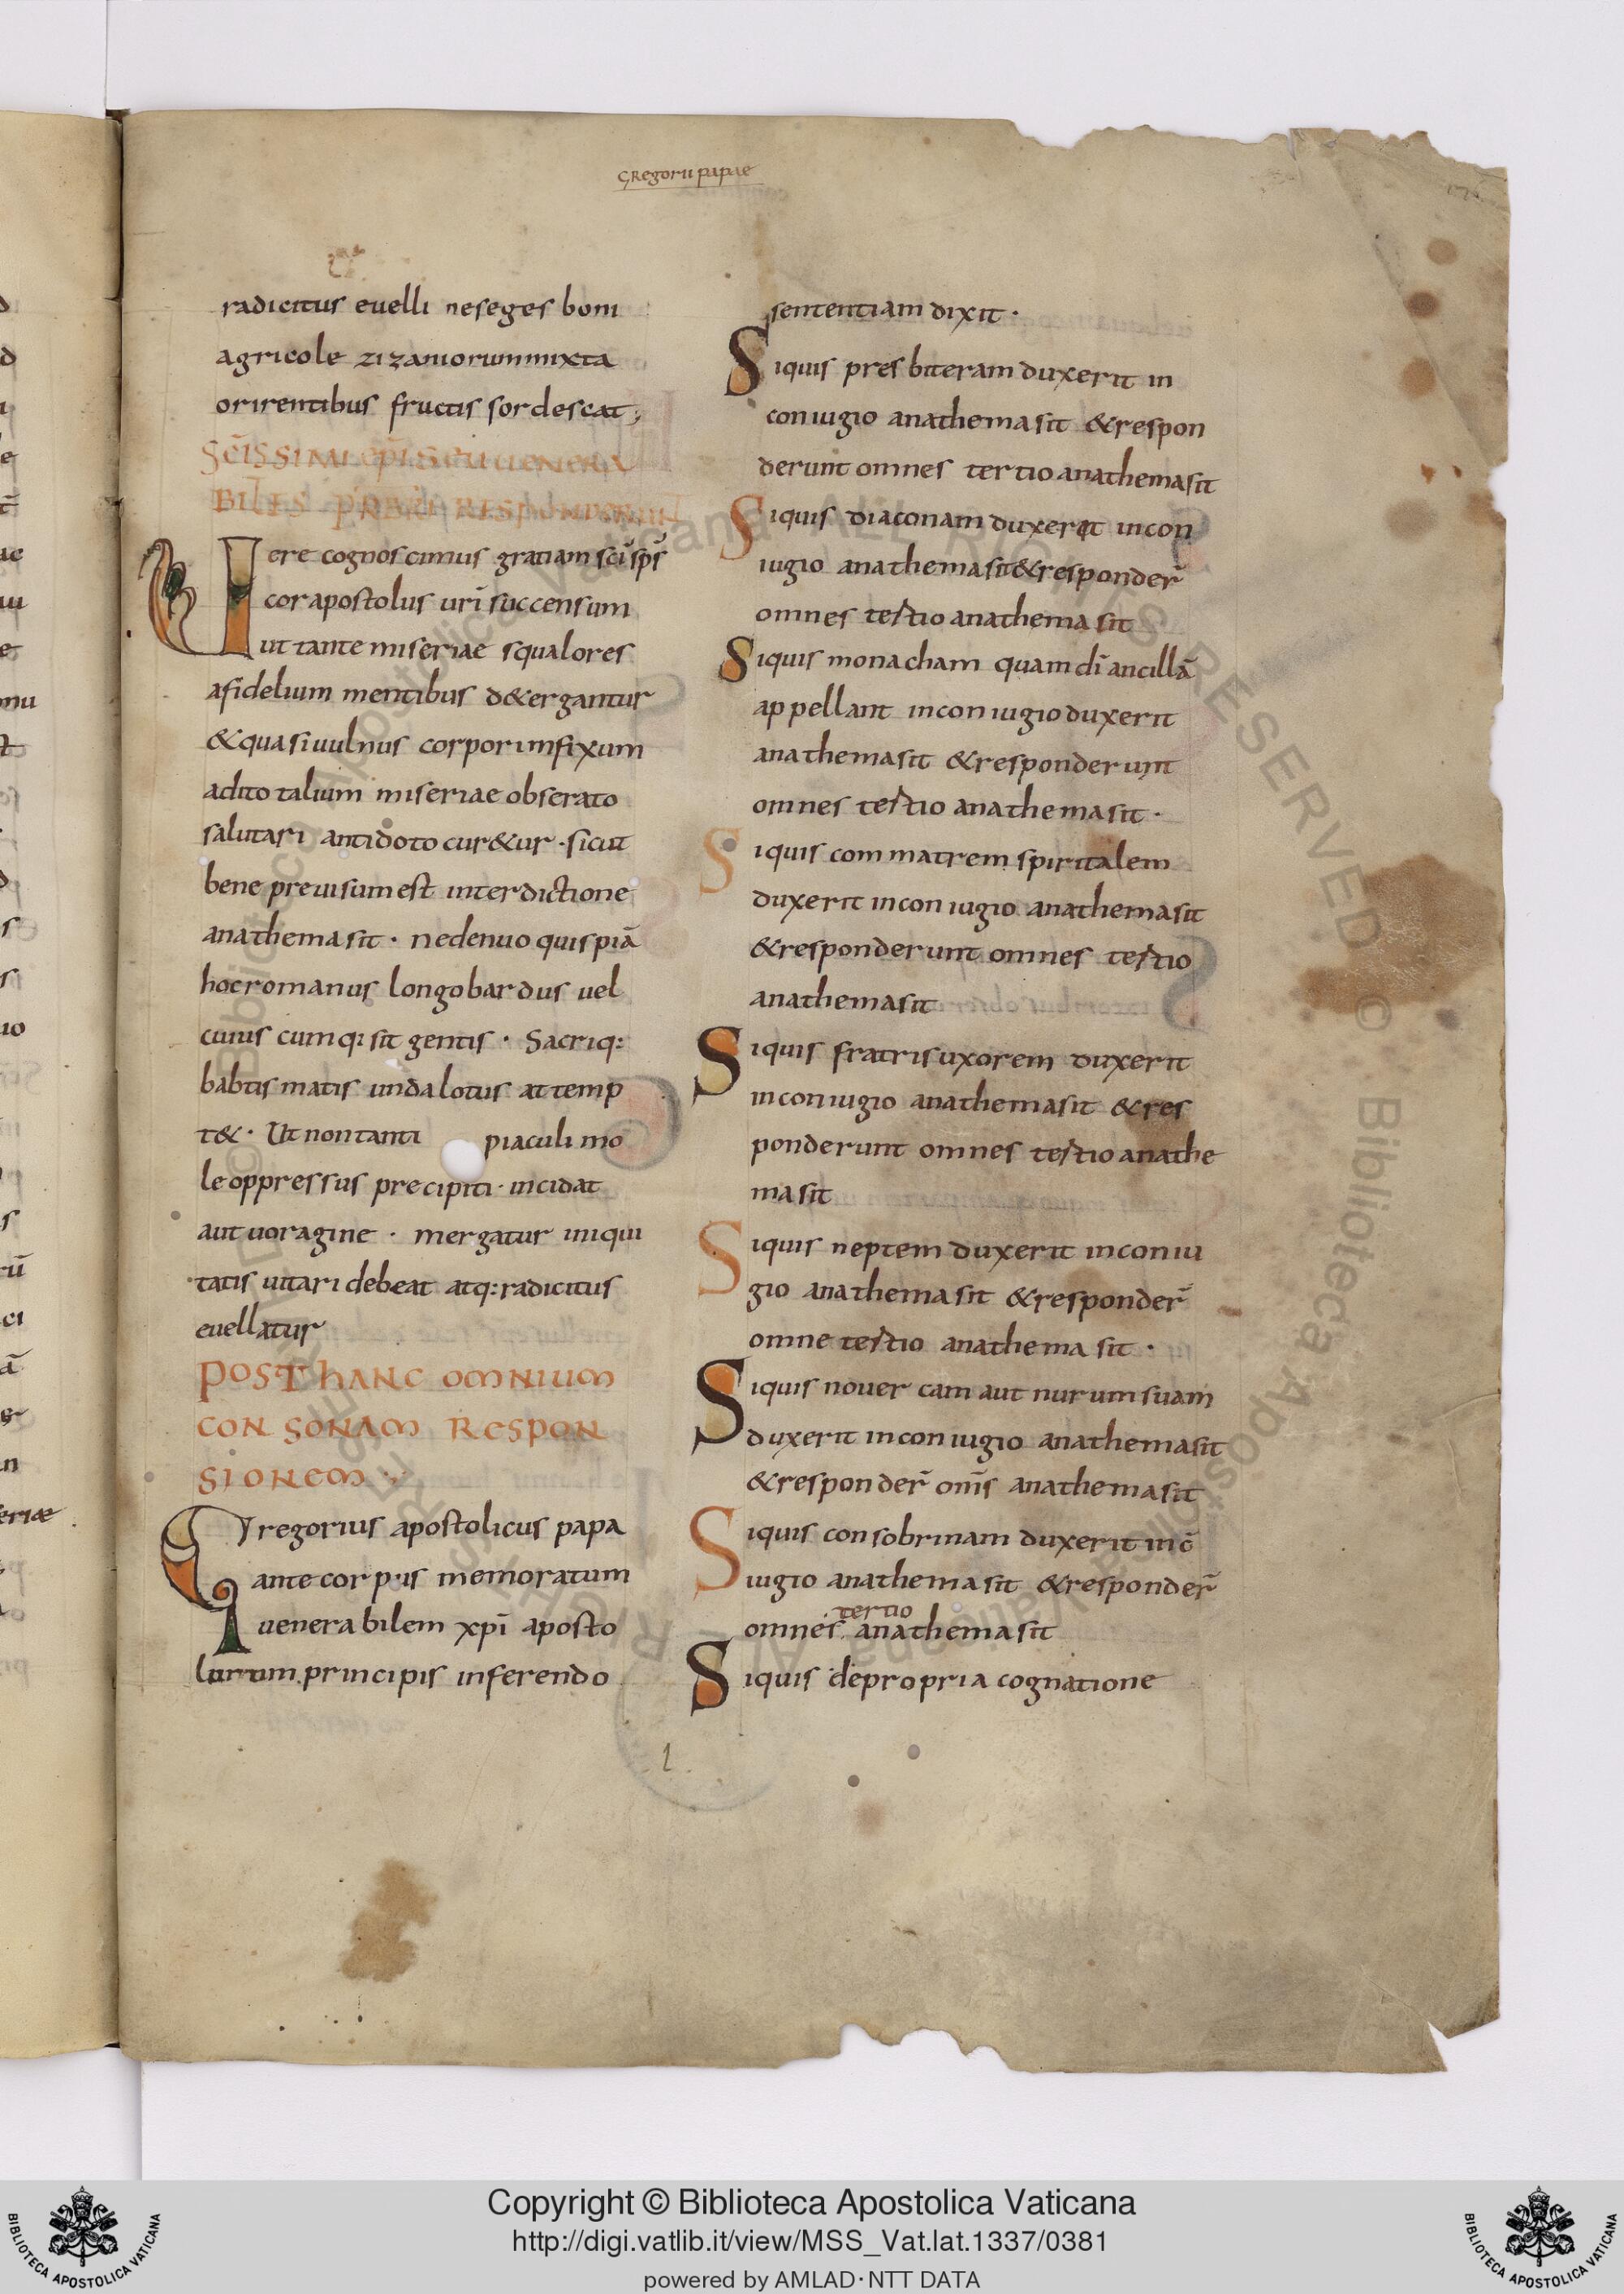 Gregorii papae
radicitus euelli neseges boni
agricole zizaniorum mixta
orirentibus fructis sordescat;
SCISSIMI EPI SEU UENERA
BILES PRBRI RESPONDERUNT
Uere cognoscimus gratiam sci sps
cor apostolus uri succensum
ut tante miseriae squalores
afidelium mentibus d&ergantur
&quasi uulnus corpori infixum
adito talium miseriae obserato
salutari antidoto cur&ur · sicut
bene preuisum est interdictione
anathema sit · nedenuo quispiā
hoc romanus longobardus uel
cuius cumq; sit gentis · Sacriq:
babtismatis unda lotus at temp
t&· Ut non tanti piaculi mo
le oppressus precipiti · incidat
aut uoragine · mergatur iniqui
tatis uitari debeat atq: radicitus
euellatur
POST hANC OMNIUM
CONSONAM RESPON
SIONEM
Gregorius apostolicus papa
ante corpus memoratum
uenerabilem xpi aposto
lorum principis inferendo
sententiam dixit ·
Siquis presbiteram duxerit in
coniugio anathema sit &respon
derunt omnes tertio anathema sit
Siquis diaconam duxerit incon
iugio anathema sit &responder̄
omnes tertio anathema sit
Siquis monacham quam dī ancillā
appellant in coniugio duxerit
anathema sit &responderunt
omnes tertio anathema sit ·
Siquis commatrem spiritalem
duxerit in coniugio anathema sit
&responderunt omnes tertio
anathema sit
Siquis fratris uxorem duxerit
in coniugio anathema sit &res
ponderunt omnes tertio anathe
ma sit
Siquis neptem duxerit in coniu
gio anathema sit &responder̄
omne tertio anathema sit ·
Siquis nouercam aut nurum suam
duxerit in coniugio anathema sit
&responder̄ om̄s anathema sit
Siquis consobrinam duxerit in cō
iugio anathema sit &responder̄
tertio
omnes anathema sit
Siquis de propria cognatione
Copyright © Biblioteca Apostolica Vaticana
http://digi.vatlib.it/view/MSS_Vat.lat.1337/0381
powered by AMLAD · NTT DATA
BIBLIOTECA APOSTOLICA VATICANA
BIBLIOTECA APOSTOLICA VATICANA